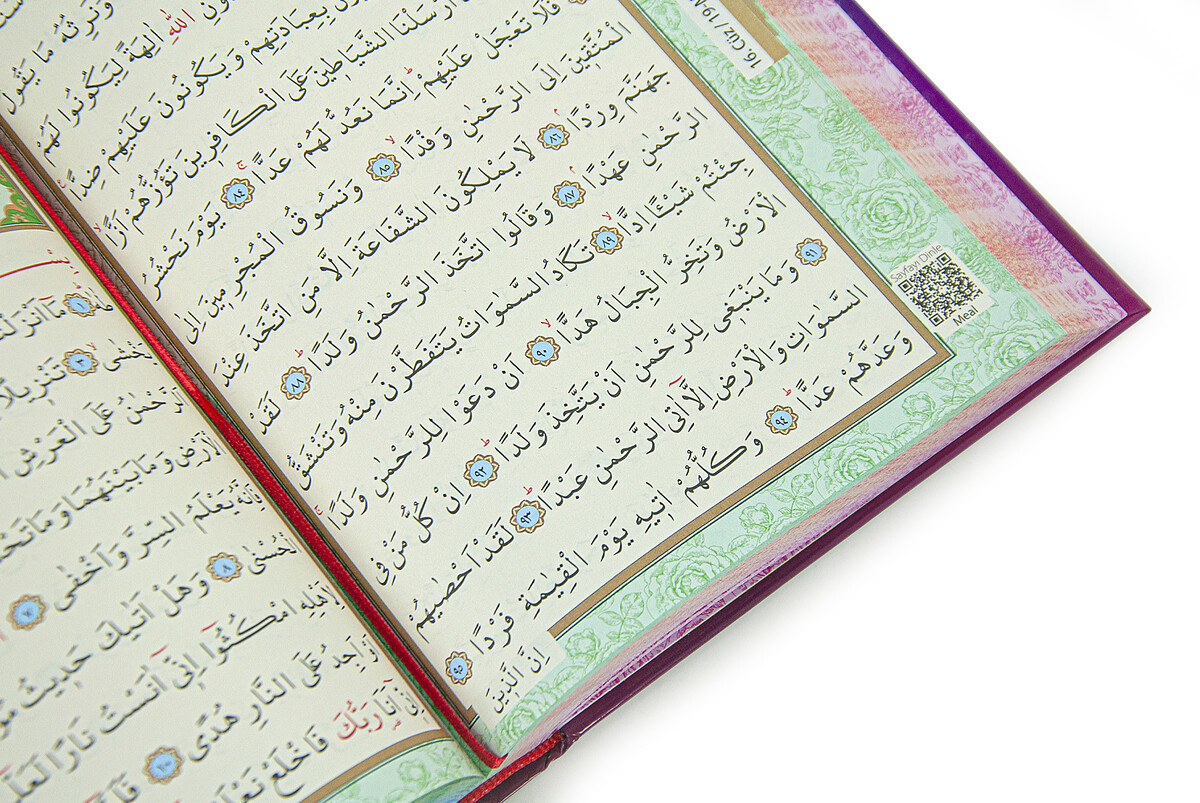 16. Cüz / 19-M
وَنَرِثُهُ مَا يَقُولُ
اللّٰهِ اٰلِهَةً لِيَكُونُوا لَهُمْ
بِعِبَادَتِهِمْ وَيَكُونُونَ عَلَيْهِمْ ضِدًّا
اَرْسَلْنَا الشَّيَاطٖينَ عَلَى الْكَافِرٖينَ تَؤُزُّهُمْ اَزًّا
فَلَا تَعْجَلْ عَلَيْهِمْ اِنَّمَا نَعُدُّ لَهُمْ عَدًّا ٨٤ يَوْمَ نَحْشُرُ
الْمُتَّقٖينَ اِلَى الرَّحْمٰنِ وَفْدًا ٨٥ وَنَسُوقُ الْمُجْرِمٖينَ اِلٰى
جَهَنَّمَ وِرْدًا ٨٦ لَا يَمْلِكُونَ الشَّفَاعَةَ اِلَّا مَنِ اتَّخَذَ عِنْدَ
الرَّحْمٰنِ عَهْدًا ٨٧ وَقَالُوا اتَّخَذَ الرَّحْمٰنُ وَلَدًا ٨٨ لَقَدْ
جِئْتُمْ شَيْـًٔا اِدًّا ٨٩ تَكَادُ السَّمٰوَاتُ يَتَفَطَّرْنَ مِنْهُ وَتَنْشَقُّ
الْاَرْضُ وَتَخِرُّ الْجِبَالُ هَدًّا ٩٠ اَنْ دَعَوْا لِلرَّحْمٰنِ وَلَدًا
٩١ وَمَا يَنْبَغٖى لِلرَّحْمٰنِ اَنْ يَتَّخِذَ وَلَدًا ٩٢ اِنْ كُلُّ مَنْ فِى
السَّمٰوَاتِ وَالْاَرْضِ اِلَّٓا اٰتِى الرَّحْمٰنِ عَبْدًا ٩٣ لَقَدْ اَحْصٰيهُمْ
وَعَدَّهُمْ عَدًّا ٩٤ وَكُلُّهُمْ اٰتٖيهِ يَوْمَ الْقِيٰمَةِ فَرْدًا ٩٥
اِنَّ الَّذٖينَ
Sayfayı Dinle
Meal
١ مَٓا اَنْزَلْنَا
يَخْشٰى ٣ تَنْزٖيلًا
اَلرَّحْمٰنُ عَلَى الْعَرْشِ
الْاَرْضِ وَمَا بَيْنَهُمَا وَمَا تَحْتَ
فَاِنَّهُ يَعْلَمُ السِّرَّ وَاَخْفٰى ٧
الْحُسْنٰى ٨ وَهَلْ اَتٰيكَ حَدٖيثُ
لِاَهْلِهِ امْكُثُٓوا اِنّٖٓى اٰنَسْتُ نَارًا لَعَلّٖٓى
اَوْ اَجِدُ عَلَى النَّارِ هُدًى ١٠ فَلَمَّٓا
اِنّٖٓى اَنَا۬ رَبُّكَ فَاخْلَعْ نَعْلَيْكَ